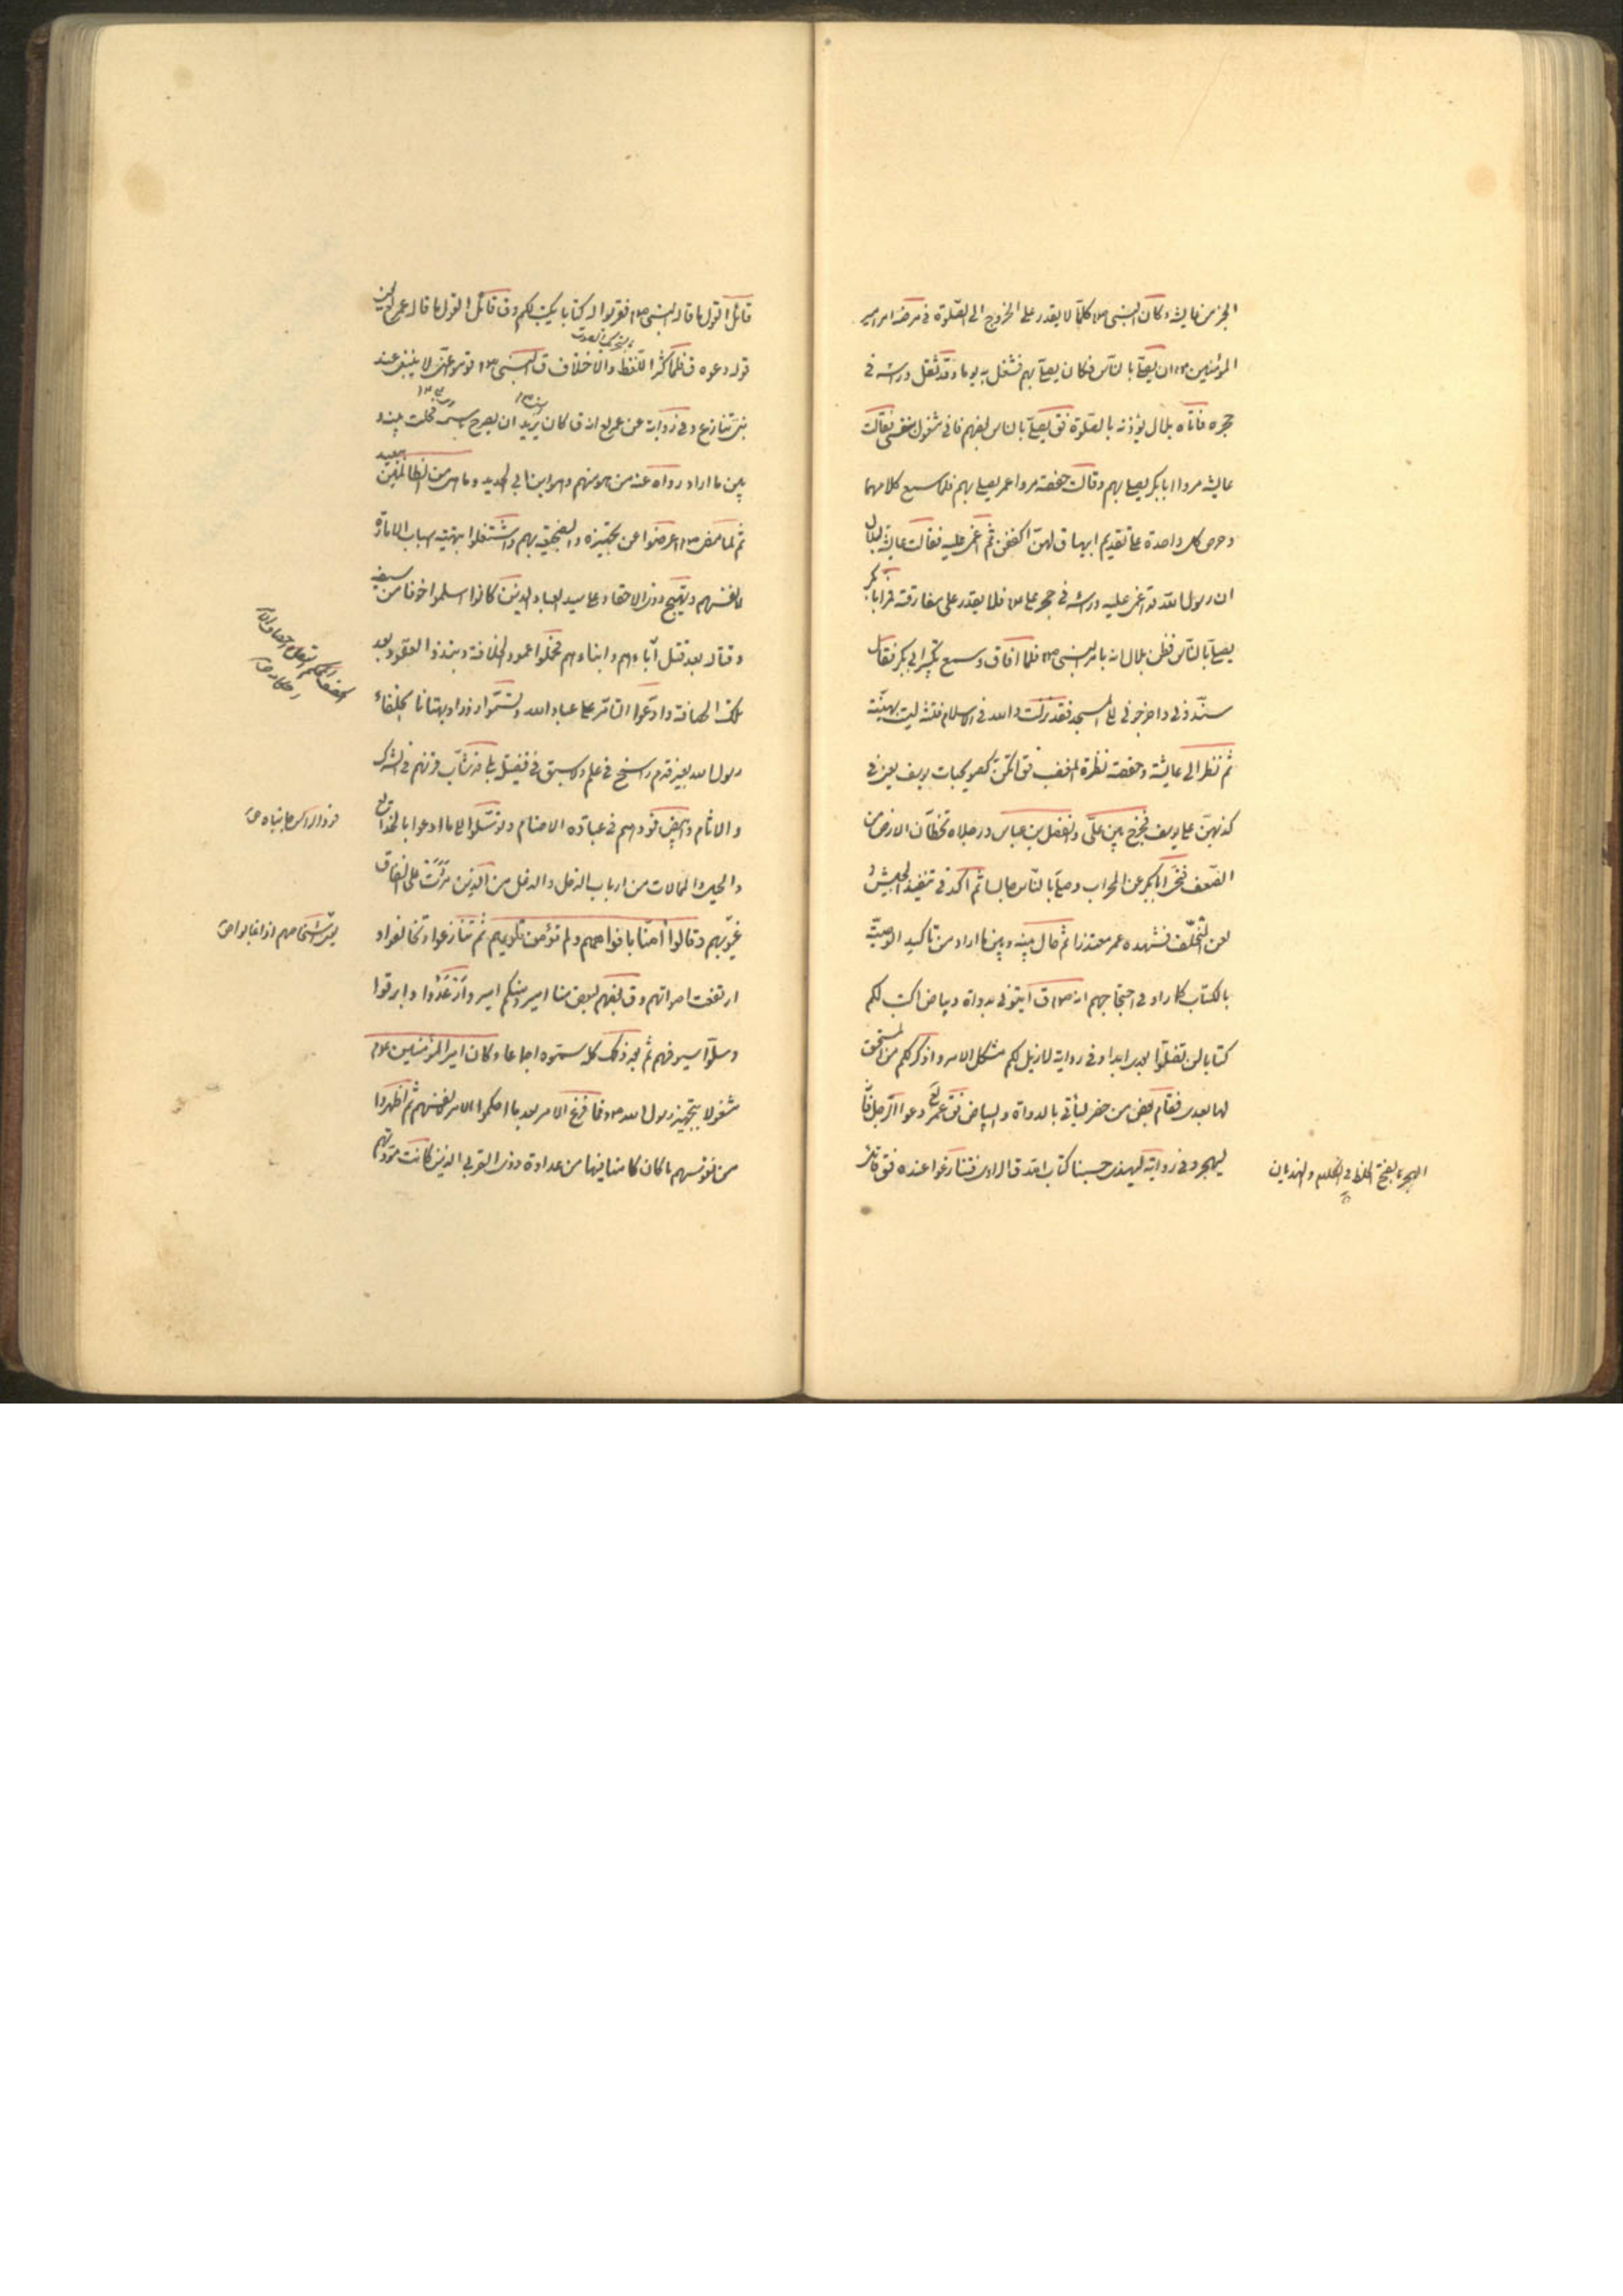 الخبر من عايشه وكان النبى ص كلما لا يقدر على الخروج الى الصلوة فى مرضه امر امير
المؤمنين ان يصلّى بالناس فكان يصلّى بهم فشغل به يوما وقد ثقل وراسه فى
حجره فاتاه بلال يؤذنه بالصلوة فق يصلّى بالناس بعضهم فانى مشغول بنفسى فقالت
عايشه مروا ابابكر يصلى بهم وقالت حفصه مروا عمر يصلى بهم فلما سمع كلامهما
وحرص كل واحدة على تقديم ابيها ق لهنّ اكففن ثم اغمى عليه فقالت عايشه لبلال
ان رسول الله قد اغمى عليه وراسه فى حجر على ص فلا يقدر على مفارقته فمر ابابكر
يصلى بالناس فظن بلال انه بامر النبى ص فلما افاق وسمع تكبير ابى بكر فقال
سنّدونى واخرجونى الى المسجد فقد نزلت والله فى الاسلام فتنه ليت بهيّنة
ثم نظر الى عايشة وحفصه نظرة المغضب فق انكنّ كصويحبات يوسف يعنى فى
كذبهنّ على يوسف فخرج بين علىّ والفضل بن عباس ورجلاه تخطّان الارض من
الضعف فنحّى ابابكر عن المحراب وصلّى بالناس جالسا ثم اكد فى تنفيذ الجيش و
لعن المتخلّف فشهده عمر معتذرا ثم حال بينه وبين ما اراد من تاكيد الوصيّة
بالكتاب كما راوا فى احتجاجهم انه ص ق ايتونى بدواة وبياض اكتب لكم
كتابا لن تضلّوا بعدى ابدا وفى رواية لازيل لكم مشكل الامر واذكر لكم من المستحق
لها بعدى فقام بعض من حضر ليأتى بالدواة والبياض فق عمر دعوا الرجل فانّه
ليهجر وفى رواية ليهذى حسبنا كتاب الله ق الراوى فتنازعوا عنده فق قائل
الهجر بالفتح الخلط فى الكلام والهذيان
قائل القول ما قاله النبى ص فقربوا له كتابا يكتب لكم وق قائل القول ما قاله عمر
قوله دعوه ق فلما كثر اللغط والاختلاف ق النبى ص قوموا عنّى لا ينبغى عند
نبى تنازع وفى رواية عن عمر انه ق كان يريد ان يصرح باسمه فحلت بينه و
بين ما اراد رواه عنه من هو منهم وهو ابن ابى الحديد وما هى من الظالمين ببعيد
ثم لما قبض ص اعرضوا عن تجهيزه والفجيعة بهم واشتغلوا بتهيئة اسباب الامارة
لانفسهم وتهييج ذوى الاحقاد على سيد العباد الذين كانوا اسلموا خوفا من سيفه
وقتاله بعد قتل آباءهم وابناءهم فحلوا عمود الخلافة ونبذوا العقود بعد
تلك المخافة وادعوا التامّر على عباد الله وتسمّوا زورا وبهتانا بخلفاء
رسول الله بغير قدم راسخ فى علم ولا سبق فى فضيل بل قد شاب قرنهم فى الشرك
والاثام وابيض فودهم فى عبادة الاصنام وتوسّلوا الى ما ادعوا بالخدايع
والحيل والمحالات من ارباب الذحل والدغل من الذين مردت على النفاق
عروبهم وقالوا آمنّا بافواههم ولم تؤمن قلوبهم ثم تنازعوا وتخالفوا و
ارتفعت اصواتهم وق بعضهم لبعض منا امير ومنكم امير وارعدوا وابرقوا
وسلّوا سيوفهم ثم بعد ذلك كله سمّوه اجماعا وكان امير المؤمنين
مشغولا بتجهيز رسول الله ص وفا فرغ الامر بعد ما احكموا الامر لانفسهم ثم اظهروا
من نفوسهم ما كان كامنا فيها من عداوة ذوى القربى الذين كانت مودّتهم